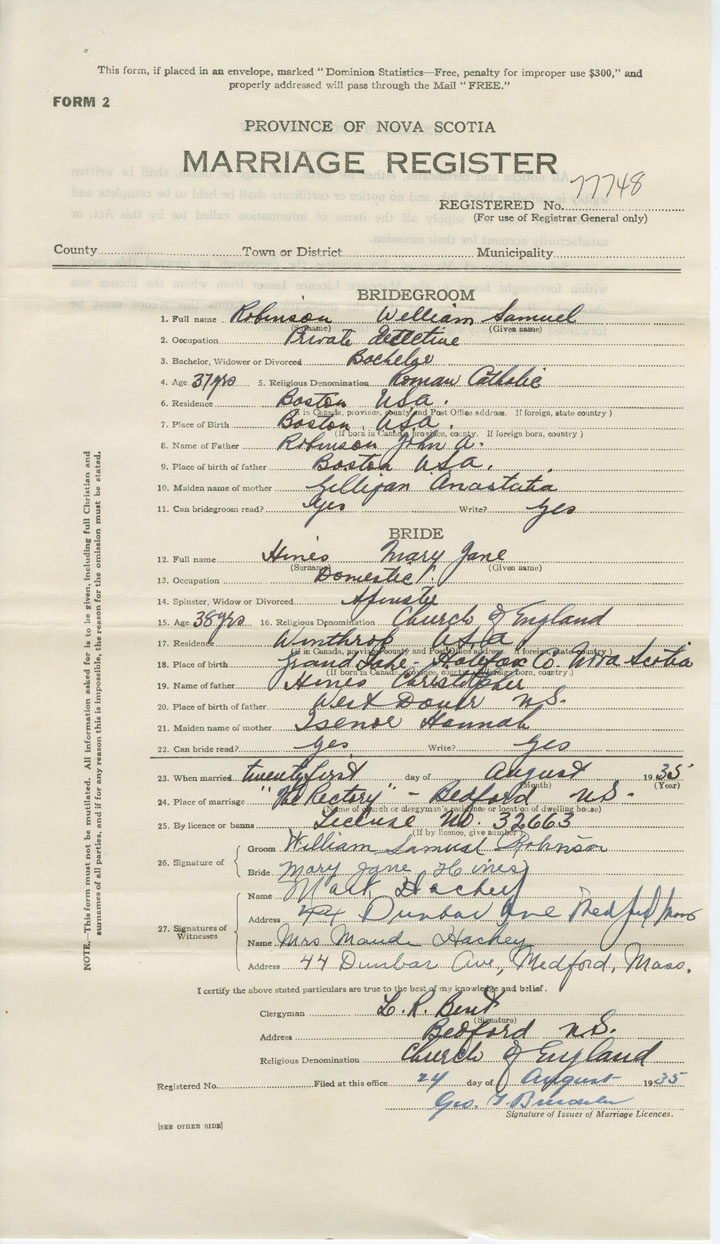 This form, if placed in an envelope, marked "Dominion Statistics—Free, penalty for improper use $300," and
properly addressed will pass through the Mail "FREE."
FORM 2
PROVINCE OF NOVA SCOTIA
MARRIAGE REGISTER
REGISTERED No. 77748
(For use of Registrar General only)
County Town or District Municipality
BRIDEGROOM
1. Full name Robinson William Samuel
(Surname) (Given name)
2. Occupation Private detective
3. Bachelor, Widower or Divorced Bachelor
4. Age 37 yrs 5. Religious Denomination Roman Catholic
6. Residence Boston USA.
(If in Canada, province, county and Post Office address. If foreign, state country)
7. Place of Birth Boston, USA.
(If born in Canada, province, county. If foreign born, country)
8. Name of Father Robinson John A.
9. Place of birth of father Boston USA.
10. Maiden name of mother Gilligan Anastatia
11. Can bridegroom read? Yes Write? Yes
BRIDE
12. Full name Hines Mary Jane
(Surname) (Given name)
13. Occupation Domestic
14. Spinster, Widow or Divorced Spinster
15. Age 38 yrs 16. Religious Denomination Church of England
17. Residence Winthrop USA
(If in Canada, province, county and Post Office address. If foreign, state country)
18. Place of birth Grand Lake - Halifax Co. Nova Scotia
(If born in Canada, province, county. If foreign born, country.)
19. Name of father Hines Christopher
20. Place of birth of father West Dover N.S.
21. Maiden name of mother Isenor Hannah
22. Can bride read? Yes Write? Yes
23. When married twenty first day of August 1935
(Month) (Year)
24. Place of marriage "The Rectory" - Bedford N.S.
(Name of church or clergyman's residence or location of dwelling house)
25. By licence or banns License No. 32663
(If by licence, give number)
26. Signature of
Groom William Samuel Robinson
Bride Mary Jane Hines
27. Signatures of Witnesses
Name Hachey
Address 44 Dunbar Ave Medford Mass
Name Mrs Maude Hachey
Address 44 Dunbar Ave, Medford, Mass.
I certify the above stated particulars are true to the best of my knowledge and belief.
Clergyman L. R. Bent
(Signature)
Address Bedford N.S.
Religious Denomination Church of England
Registered No. Filed at this office 24 day of August 1935
Geo.
Signature of Issuer of Marriage Licences.
[SEE OTHER SIDE]
NOTE.—This form must not be mutilated. All information asked for is to be given, including full Christian and
surnames of all parties, and if for any reason this is impossible, the reason for the omission must be stated.